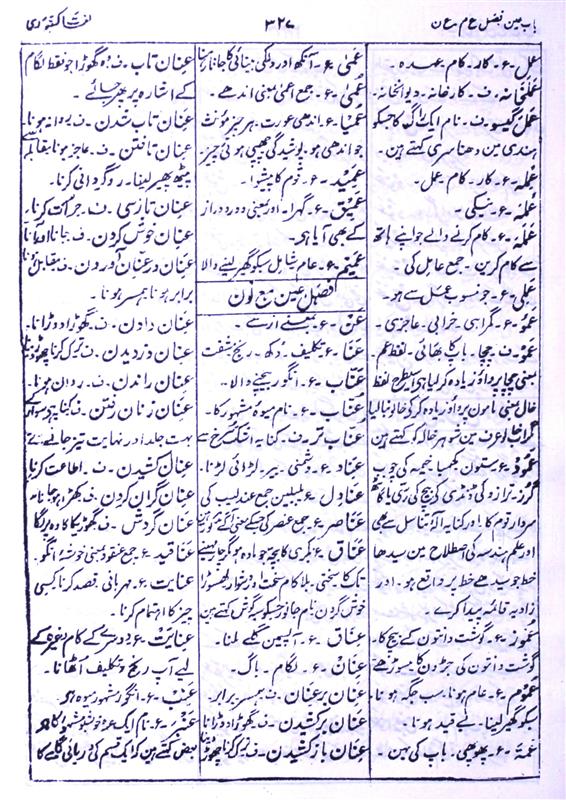 باب مین فصل ع م - ع ن
۳۲۷
لغات کشوری
عمل - ع - کار - کام - عہدہ -
عملخانہ - ف - کارخانہ - دیوانخانہ -
عمل گیسو - ف - نام ایک راگ کا جسکو
ہندی مین دھناسری کہتے ہین -
عملہ - ع - کار - کام - عمل -
عملہ - ع - نیکی
عملہ - ع - کام کرنے والے جو اپنے ہاتھ
سے کام کرین - جمع عامل کی -
عملی - ع - جو منسوب عمل سے ہو -
عمو - ع - گمراہی - خرابی - عاجزی -
عمو - ف - چچا - باپ کا بھائی - لفظ عم -
بمعنی چچا پر واؤ زیادہ کر لیا ہی اسیطرح لفظ
خال بمعنی مامون پر واؤ زیادہ کر کی خالو بنا لیا
عرف مین شوہر خالہ کو کہتے ہین
عمود - ع - ستون - کھمبا - خیمہ کی چوب
گرز - ترازو کی ڈنڈی کی بیچ کی رسی یا کانٹا
سردار قوم کا - اور کنایہ آلۂ تناسل سے بھی
اور علم ہندسہ کی اصطلاح مین سیدھا
خط جو سیدھے خط پر واقع ہو - اور
زاویہ قائمہ پیدا کرے -
عمور - ع - گوشت دانتون کے بیچ کا -
گوشت دانتون کی جڑون کا مسوڑھے
عموم - ع - عام ہونا - سب جگہ ہونا
سبکو گھیر لینا - بے قید ہونا -
عمہ - ع - پھوپھی - باپ کی بہن -
عمی - ع - آنکھ اور دلکی بینائی کا جاتا رہنا
عمی - ع - جمع اعمی بمعنی اندھے -
عمیا - ع - اندھی عورت - ہر چیز مؤنث
جو اندھی ہو - پوشیدگی چھپی ہوئی چیز
عمید - ع - قوم کا پیشوا -
عمیق - ع - گہرا - اور بمعنی دور و دراز
کے بھی آیا ہی -
عمیم - ع - عام شامل سبکو گھیر لینے والا
فصل عین مع نون
عن - ع - بمعنے از سے -
عنا - ع - تکلیف - دکھ - رنج مشقت
عناب - ع - انگور بیچنے والا -
عناب - ع - نام میوہ مشہور کا -
عناب تر - ف - کنایہ اشک سرخ سے
عناد - ع - دشمنی - بیر - لڑائی لڑنا -
عنادل - ع - بلبلین جمع عندلیب کی
عناصر - ع - جمع عنصر کی
عناق - ع - بکری کا بچہ جو مادہ ہو
تک کا سختی - بلا کام سخت
خوش گردن نام جانور جسکو سیہ گوش کہتے ہین
عناق - ع - آپسمین گلے ملنا -
عنان - ع - لگام - باگ -
عنان بر عنان - ف - ہمسر برابر -
عنان برکشیدن - ف - گھوڑا دوڑانا
عنان باز کشیدن - ف - ترک کرنا چھوڑ دینا
عنان تاب - ف - وہ گھوڑا جو فقط لگام
کے اشارہ پر پھر جائے -
عنان تاب شدن - ف - روانہ ہونا -
عنان تافتن - ف - عاجز ہونا بمقابلہ
پیٹھ پھیر لینا - روگردانی کرنا -
عنان تازسی - ف - جرأت کرنا -
عنان خوش کردن - ف - جانا اور آنا
عنان در عنان آوردن - ف - مقابل ہونا
برابر ہونا ہمسر ہونا -
عنان دادن - ف - گھوڑا دوڑانا -
عنان دزدیدن - ف - ترک کرنا چھوڑ دینا
عنان راندن - ف - روان ہونا -
عنان زنان رفتن - ف - کنایہ ہے سوار کے
بہت جلد اور نہایت تیز جانے سے
عنان کشیدن - ف - اطاعت کرنا
عنان گران کردن - ف - کھڑا ہو جانا
عنان گردش - ف - گھوڑیکا کاوہ
عناقید - ع - جمع عنقود بمعنی خوشہ انگور
عنایت - ع - مہربانی - قصد کرنا کسی
چیز کا اہتمام کرنا -
عنایت - ع - دوسرے کے کام وغیرہ کے
لیے آپ رنج و تکلیف اٹھانا -
عنب - ع - انگور مشہور میوہ ہو
عنبر - ع - نام ایک خوشبو مشہور کا
بعض کہتے ہین کہ ایک قسم کی دریائی گائے کا